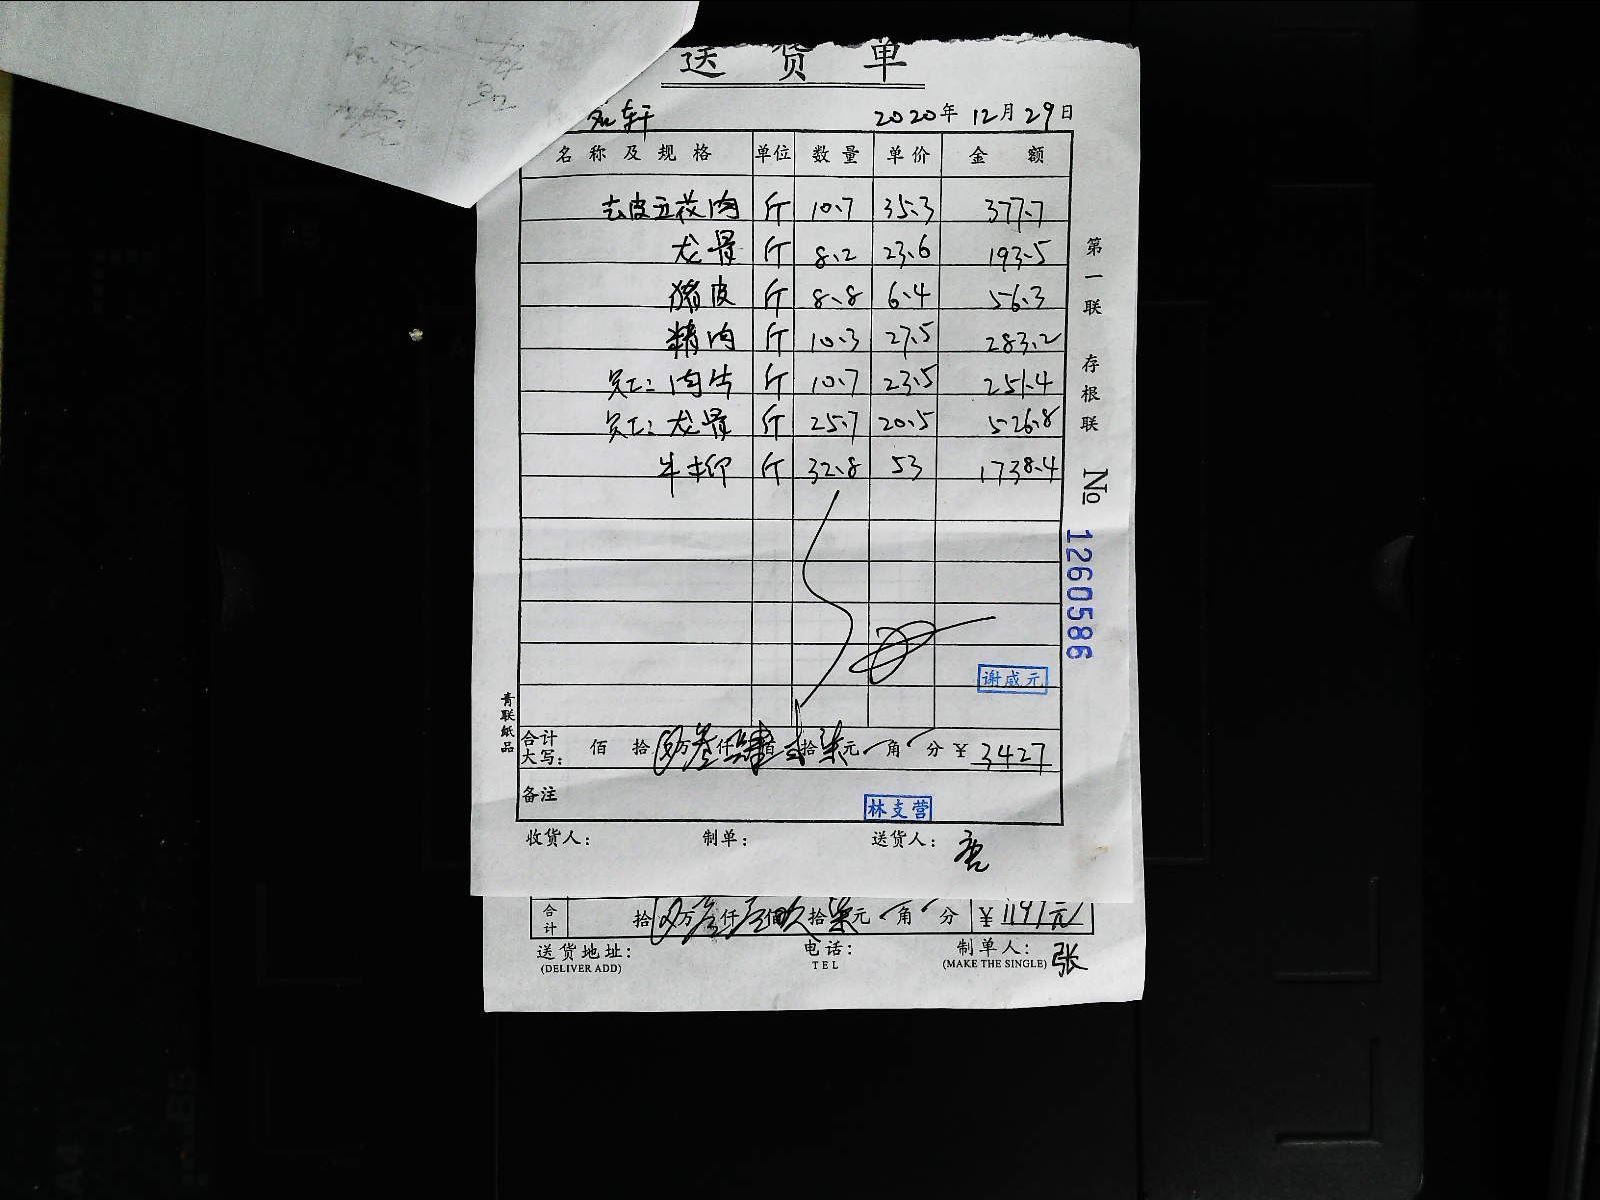 送货单
轩
2020年12月29日
名称及规格 单位 数量 单价 金额
去皮五花肉 斤 10.7 35.3 377.7
龙骨 斤 8.2 23.6 193.5
猪皮 斤 8.8 6.4 56.3
精肉 斤 10.3 27.5 283.2
员工:肉片 斤 10.7 23.5 251.4
员工:龙骨 斤 25.7 20.5 526.8
牛柳 斤 32.8 53 1738.4
第一联 存根联
No 1260586
谢威元
青联纸品
合计大写: 佰 拾 万叁仟肆佰贰拾柒元 角 分 ¥ 3427
备注
林支营
收货人: 制单: 送货人:
合计 拾 万 仟 佰玖拾柒元 角 分 ¥ 1197元
送货地址: 电话: 制单人: 张
(DELIVER ADD) TEL (MAKE THE SINGLE)